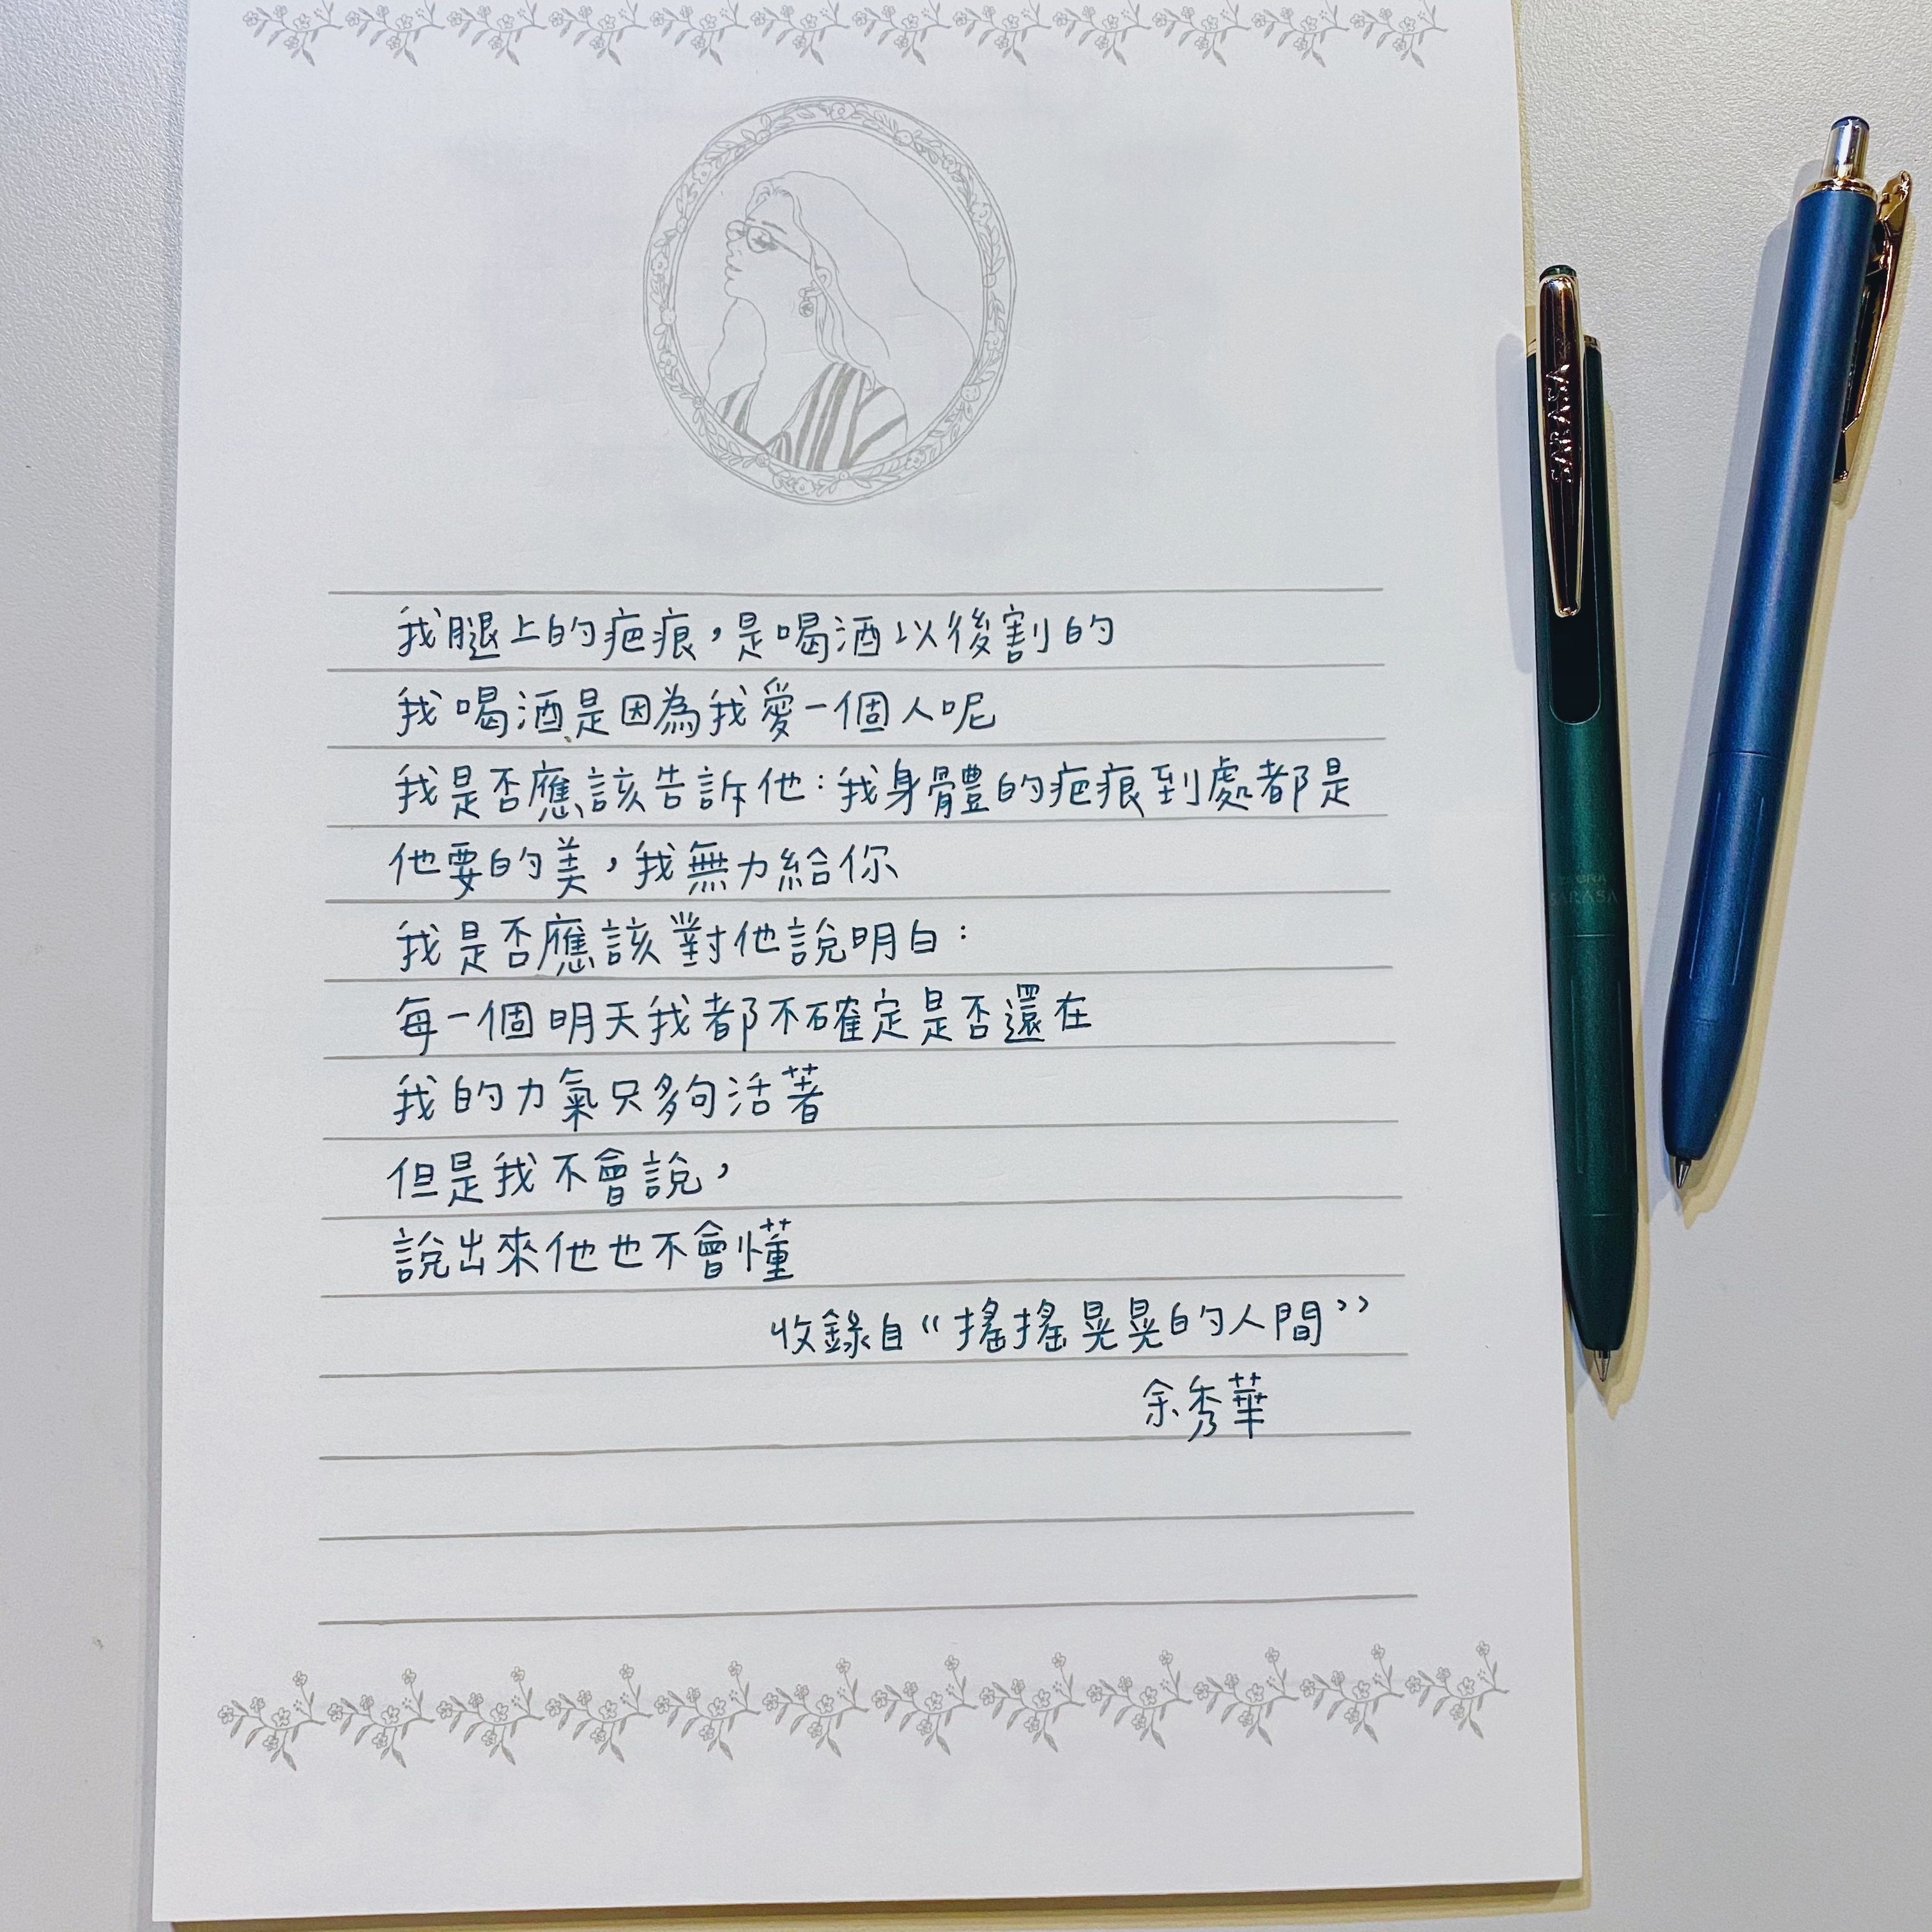 我腿上的疤痕，是喝酒以後割的
我喝酒是因為我愛一個人呢
我是否應該告訴他：我身體的疤痕到處都是
他要的美，我無力給你
我是否應該對他說明白：
每一個明天我都不確定是否還在
我的力氣只夠活著
但是我不會說，
說出來他也不會懂
收錄自“搖搖晃晃的人間”
余秀華
SARASA
ZEBRA
SARASA